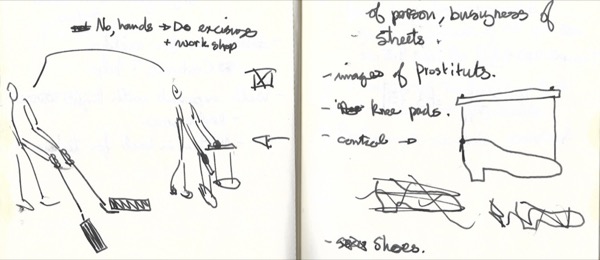 No, hands → Do excisises
+ work shop
of person, busyness of
- sheets.
- images of Prostituts.
- knee pads.
- control →
- shoes.